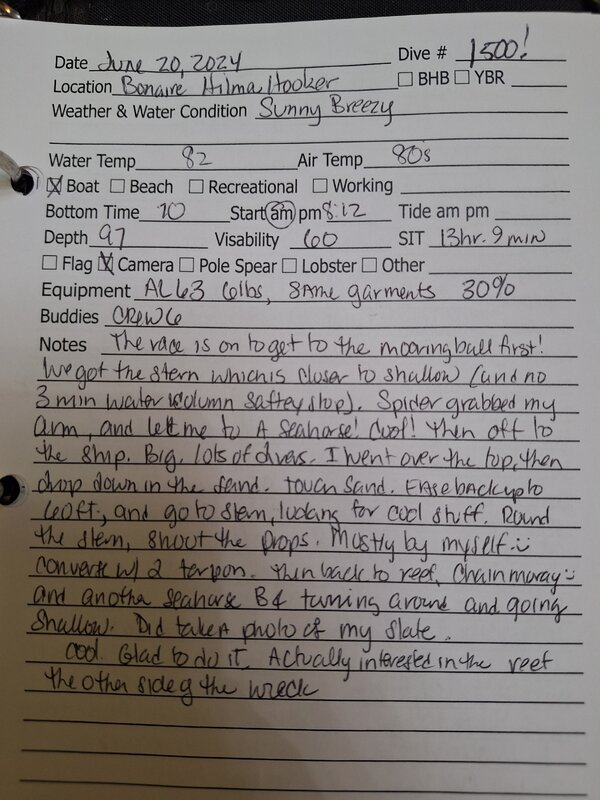 Date June 20, 2024 Dive # 1500!
Location Bonaire Hilma Hooker ☐ BHB ☐ YBR
Weather & Water Condition Sunny Breezy
Water Temp 82 Air Temp 80s
☒ Boat ☐ Beach ☐ Recreational ☐ Working
Bottom Time 70 Start am pm 8:12 Tide am pm
Depth 97 Visability 60 SIT 13hr. 9 min
☐ Flag ☒ Camera ☐ Pole Spear ☐ Lobster ☐ Other
Equipment AL63 6lbs, same garments 30%
Buddies CREW 6
Notes The race is on to get to the mooring ball first!
We got the stern which is closer to shallow (and no
3 min water column saftey stop). Spider grabbed my
arm, and let me to A seahorse! Cool! Then off to
the ship. Big. lots of divers. I went over the top, then
drop down in the sand. touch sand. Ease back up to
60ft, and go to stern, looking for cool stuff. Round
the stern, shoot the props. Mostly by myself :)
converse w/ 2 tarpon. then back to reef, Chain moray :)
and another seahorse B4 turning around and going
Shallow. Did take A photo of my slate.
Cool. Glad to do it. Actually interested in the reef
the other side of the wreck